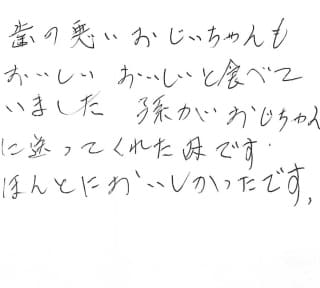 歯の悪いおじいちゃんも
おいしい おいしいと食べて
いました 孫がおじちゃん
に送ってくれた母です.
ほんとにおいしかったです,